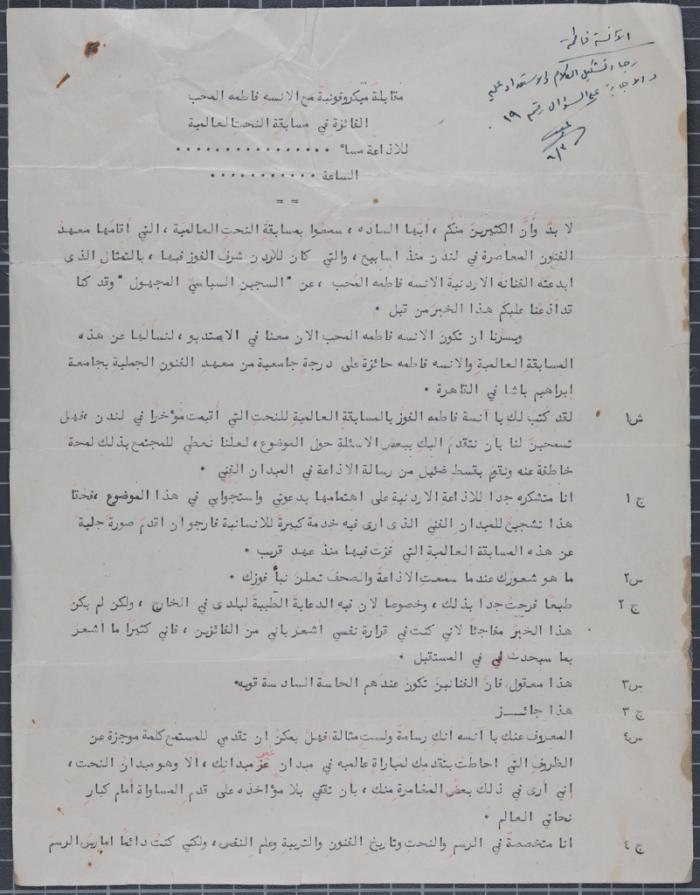 الآنسة فاطمة
رجاء تشكيل الكلام والاستعداد عليه
والاجابة على السؤال رقم ١٩
مقابلة ميكروفونية مع الانسه فاطمه المحب
الفائزة في مسابقة النحت العالمية
للاذاعة مساء ................
الساعة ...........
= =
لا بدّ وأنّ الكثيرين منكم ، أيّها الساده ، سمعوا بمسابقة النحت العالمية ، التي أقامها معهد
الفنون المعاصرة في لندن منذ اسابيع ، والتي كان للاردن شرف الفوز فيها ، بالتمثال الذى
ابدعته الفنانه الاردنية الانسه فاطمه المحب ، عن " السجين السياسي المجهول " وقد كنا
قد اذعنا عليكم هذا الخبر من قبل .
ويسرنا ان تكون الانسه فاطمه المحب الان معنا في الاستديو ، لنسالها عن هذه
المسابقة العالمية والانسه فاطمه حائزة على درجة جامعية من معهد الفنون الجميلة بجامعة
ابراهيم باشا في القاهرة .
س١ لقد كتب لك يا آنسة فاطمه الفوز بالمسابقة العالمية للنحت التي أقيمت مؤخرا في لندن ، فهل
تسمحين لنا بان نتقدم اليك ببعض الاسئلة حول الموضوع ، لعلنا نعطي للمجتمع بذلك لمحة
خاطفة عنه ونقوم بقسط ضئيل من رسالة الاذاعة في الميدان الفني .
ج ١ انا متشكره جدا للاذاعة الاردنية على اهتمامها بدعوتي واستجوابي في هذا الموضوع ، فحقا
هذا تشجيع للميدان الفني الذى ارى فيه خدمة كبيرة للانسانية فارجو ان اقدم صورة جلية
عن هذه المسابقة العالمية التي فزت فيها منذ عهد قريب .
س٢ ما هو شعورك عندما سمعت الاذاعة والصحف تعلن نبأ فوزك .
ج ٢ طبعا فرحت جدا بذلك ، وخصوصا لان فيه الدعاية الطيبة لبلدى في الخارج ، ولكن لم يكن
هذا الخبر مفاجئا لاني كنت في قرارة نفسي اشعر باني من الفائزين ، فاني كثيرا ما اشعر
بما سيحدث لي في المستقبل .
س٣ هذا معقول ، فان الفنانين تكون عندهم الحاسة السادسة قويه .
ج ٣ هذا جائـــز
س٤ المعروف عنك يا آنسه انك رسامة ولست مثالة فهل يمكن أن تقدمي للمستمع كلمة موجزة عن
الظروف التي احاطت بتقدمك لمباراة عالميه في ميدان غير ميدانك ، الا وهو ميدان النحت ،
إني ارى في ذلك بعض المغامرة منك ، بأن تقفي بلا مؤاخذه على قدم المساواة أمام كبار
نحاتي العالم .
ج ٤ انا متخصصة في الرسم والنحت وتاريخ الفنون والتربية وعلم النفس ، ولكني كنت دائما امارس الرسم